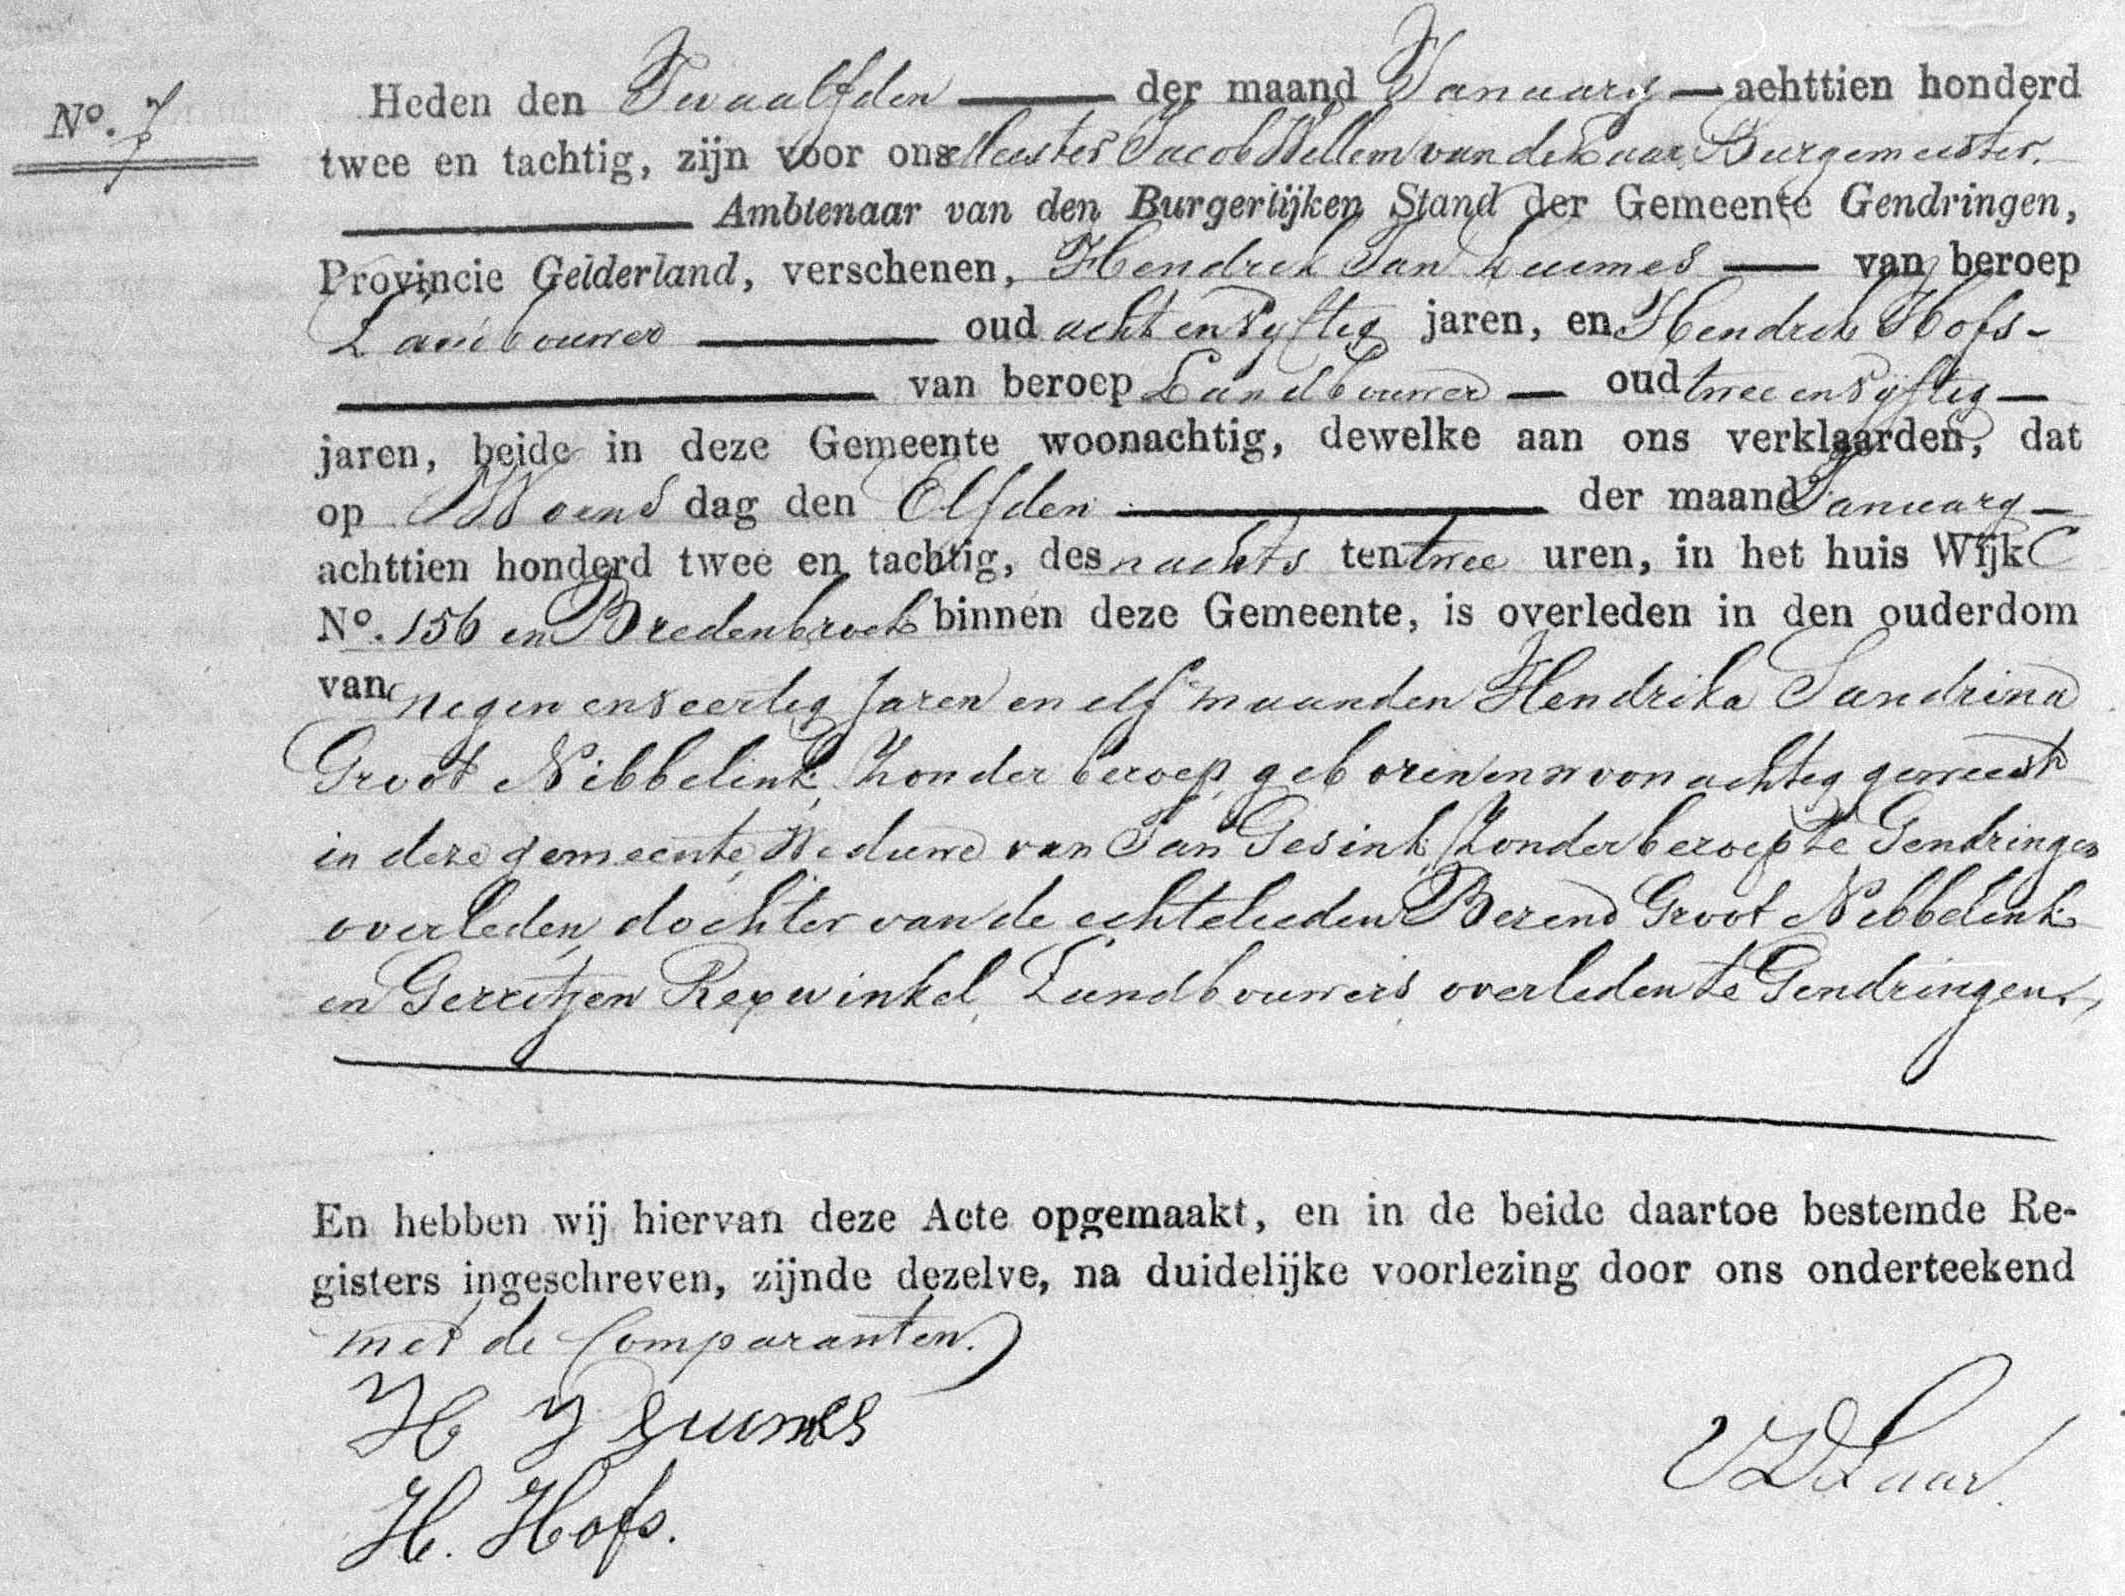 No. 7
Heden den Twaalfden der maand January achttien honderd
twee en tachtig, zijn voor ons Meester Jacob Willem van de Laar, Burgemeester.
Ambtenaar van den Burgerlijken Stand der Gemeente Gendringen,
Provincie Gelderland, verschenen, Hendrik Jan Luimes van beroep
Landbouwer oud acht en vyftig jaren, en Hendrik Hofs
van beroep Landbouwer oud twee en vyftig
jaren, beide in deze Gemeente woonachtig, dewelke aan ons verklaarden, dat
op Woensdag den Elfden der maand January
achttien honderd twee en tachtig, des nachts ten twee uren, in het huis Wijk C
No. 156 in Bredenbroek binnen deze Gemeente, is overleden in den ouderdom
van negen en veertig jaren en elf maanden Hendrika Sandrina
Groot Nibbelink, zonder beroep, geboren en woonachtig geweest
in deze gemeente, Weduwe van Jan Gesink, zonder beroep te Gendringen
overleden, dochter van de echtelieden Berend Groot Nibbelink
en Gerritjen Rexwinkel, Landbouwers, overleden te Gendringen.
En hebben wij hiervan deze Acte opgemaakt, en in de beide daartoe bestemde Re-
gisters ingeschreven, zijnde dezelve, na duidelijke voorlezing door ons onderteekend
met de Comparanten.
H J Luimes
VDLaar.
H. Hofs.